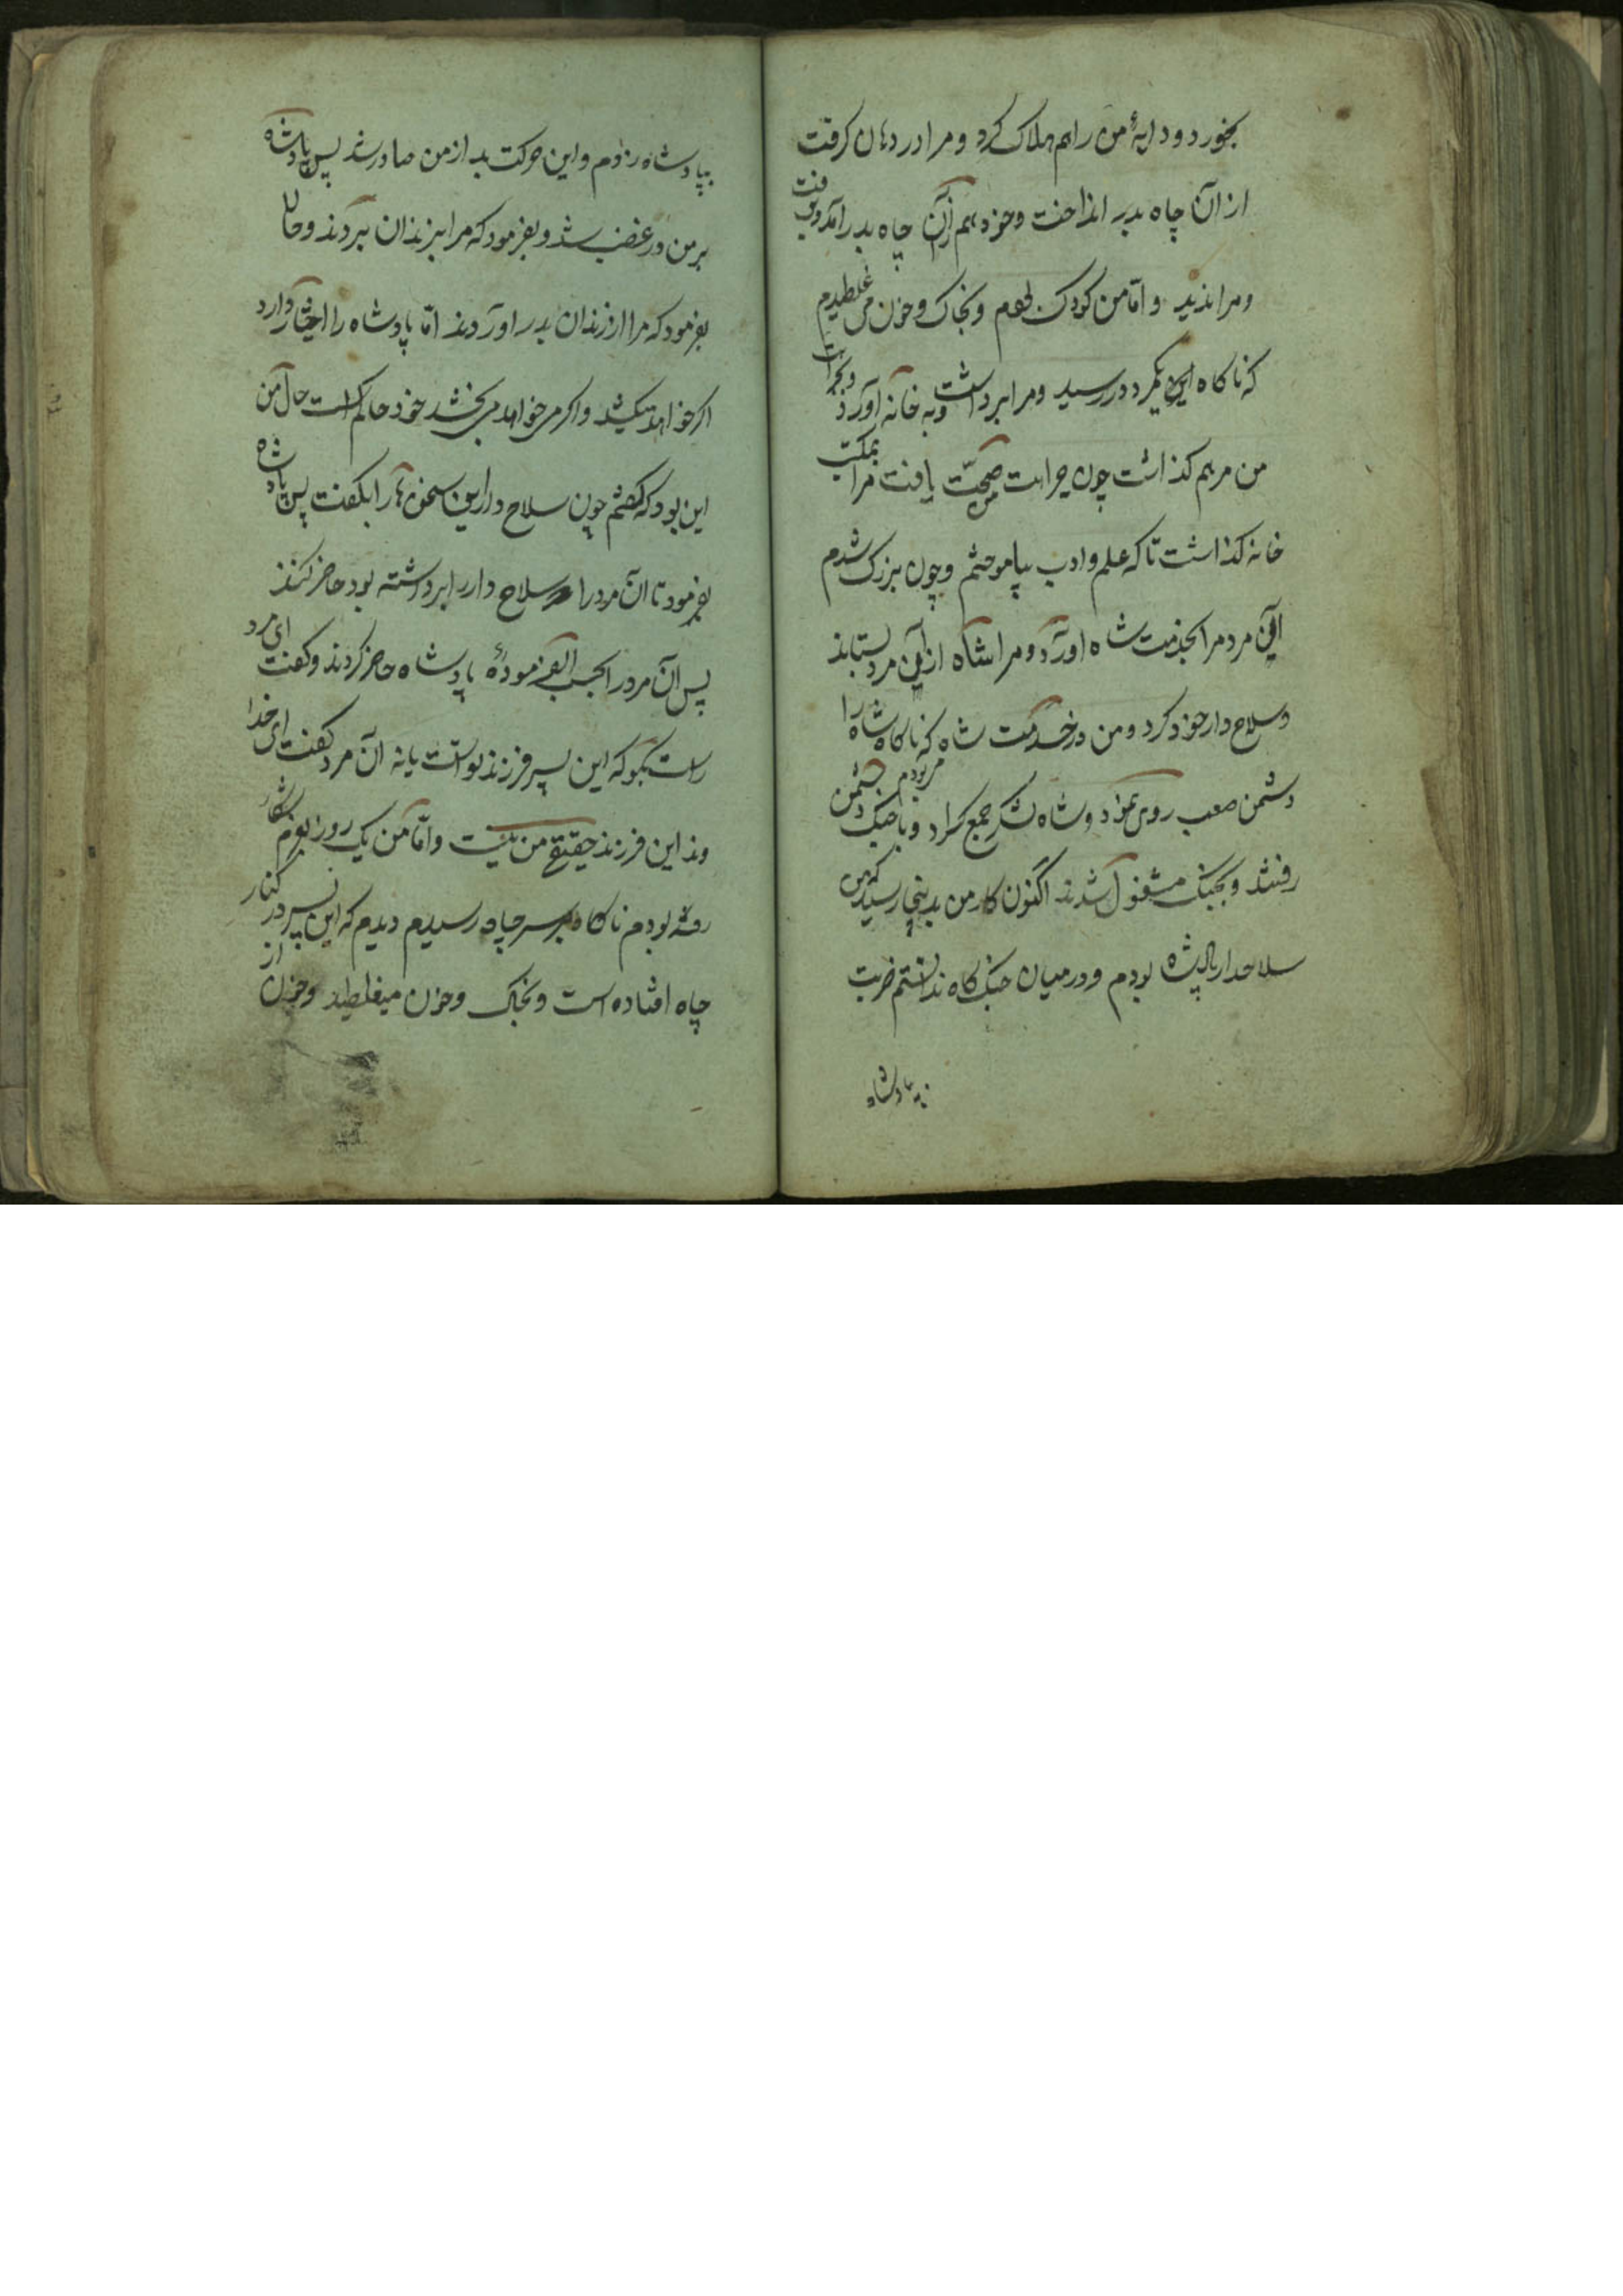 بخورد و دایهٔ من را هم هلاک کرد و مرا در دهان کرفت
از آن چاه بدر انداخت و خود هم از آن چاه بدر آمد و برفت
و مرا ندید و امّا من کودک بودم و بخاک و خون می غلطیدم
که ناکاه این مرد در رسید و مرا برداشت و به خانه آورد و بجراحت
من مرهم کذاشت چون جراحت من صحّت یافت مرا بمکتب
خانه کذاشت تا که علم و ادب بیاموختم و چون بزرک شدم
این مرد مرا بخدمت شاه آورد و مرا شاه از این مرد بستاند
و سلاح دار خود کرد و من در خدمت شاه می بودم که ناکاه شاه را
دشمن صعب روی نمود و شاه لشکر جمع کرد و با جنک دشمن
رفتند و بجنک مشغول شدند اکنون کار من بدینجا رسید که من
سلاحدار پادشاه بودم و در میان جنک کاه ندانستم ضربت
بپادشاه
بپادشاه زدم و این حرکت بد از من صادر شد پس پادشاه
بر من در غضب شد و بفرمود که مرا بزندان بردند و حالا
بفرمود که مرا از زندان بدر آوردند امّا پادشاه را اختیار دارد
اکر خواهد میکشد و اکر می خواهد می بخشد خود حاکم است حال من
این بود که کفتم چون سلاح دار این سخن ها را بکفت پس پادشاه
بفرمود تا آن مرد را که سلاح دار را برداشته بود حاضر کنند
پس آن مرد را بحسب الفرمودهٔ پادشاه حاضر کردند و کفت ای مرد
راست بکو که این پسر فرزند تو است یا نه آن مرد کفت ای خدا
وند این فرزند حقیقی من نیست و امّا من یک روز بعزم شکار
رفته بودم ناکاه بر سر چاه رسیدم دیدم که این پسر در کنار
چاه افتاده است و بخاک و خون میغلطید و خون از